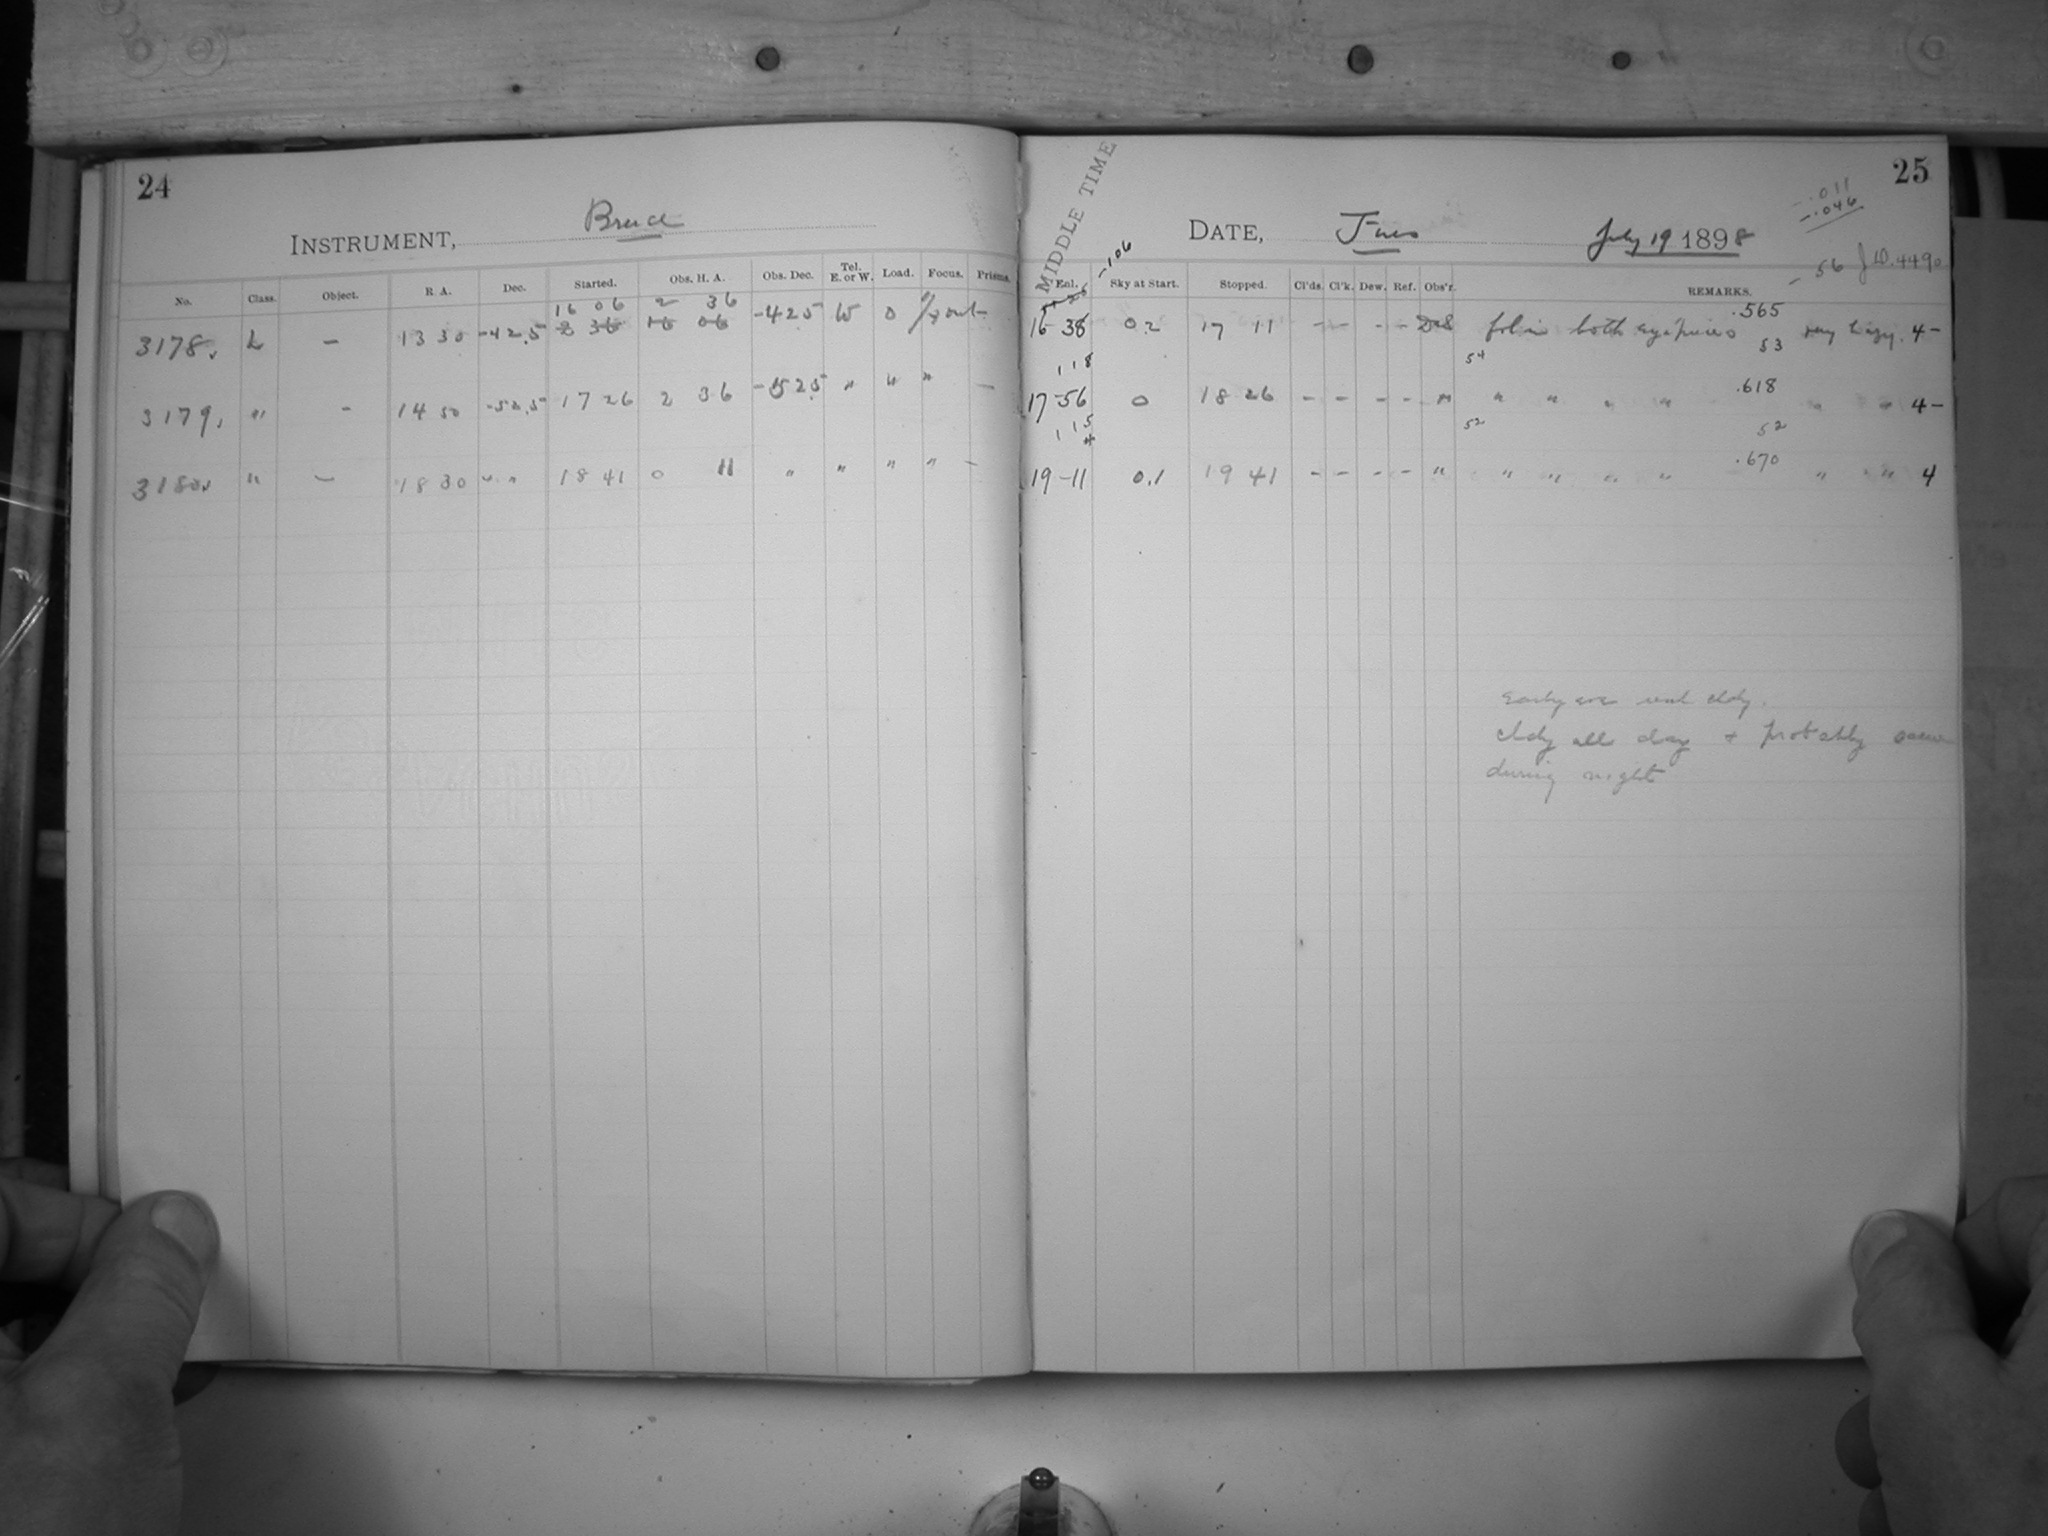 24
INSTRUMENT, Bruce
No. Class. Object. R. A. Dec. Started. Obs. H. A. Obs. Dec. Tel. E. or W. Load. Focus. Prisms.
16 06 2 36
3178. L - 13 30 -42.5 2 36 16 06 -425 W 0 out -
3179. " - 14 50 -52.5 17 26 2 36 -525 " " " -
3180. " - 18 30 " " 18 41 0 11 " " " " -
25
MIDDLE TIME
DATE, Tues July 19 1898
-.011
-.046
-56 J.D. 4490
-.106
Enl. Sky at Start. Stopped. Cl'ds. Cl'k. Dew. Ref. Obs'r. REMARKS.
.565
16-38 0.2 17 11 - - - - both eyepieces very hazy. 4-
53
54
1 18
.618
17-56 0 18 26 - - - - " " " " " " " 4-
52
52
1 15
.670
19-11 0.1 19 41 - - - - " " " " " " " 4
Early eve cldy.
cldy all day + probably
during night